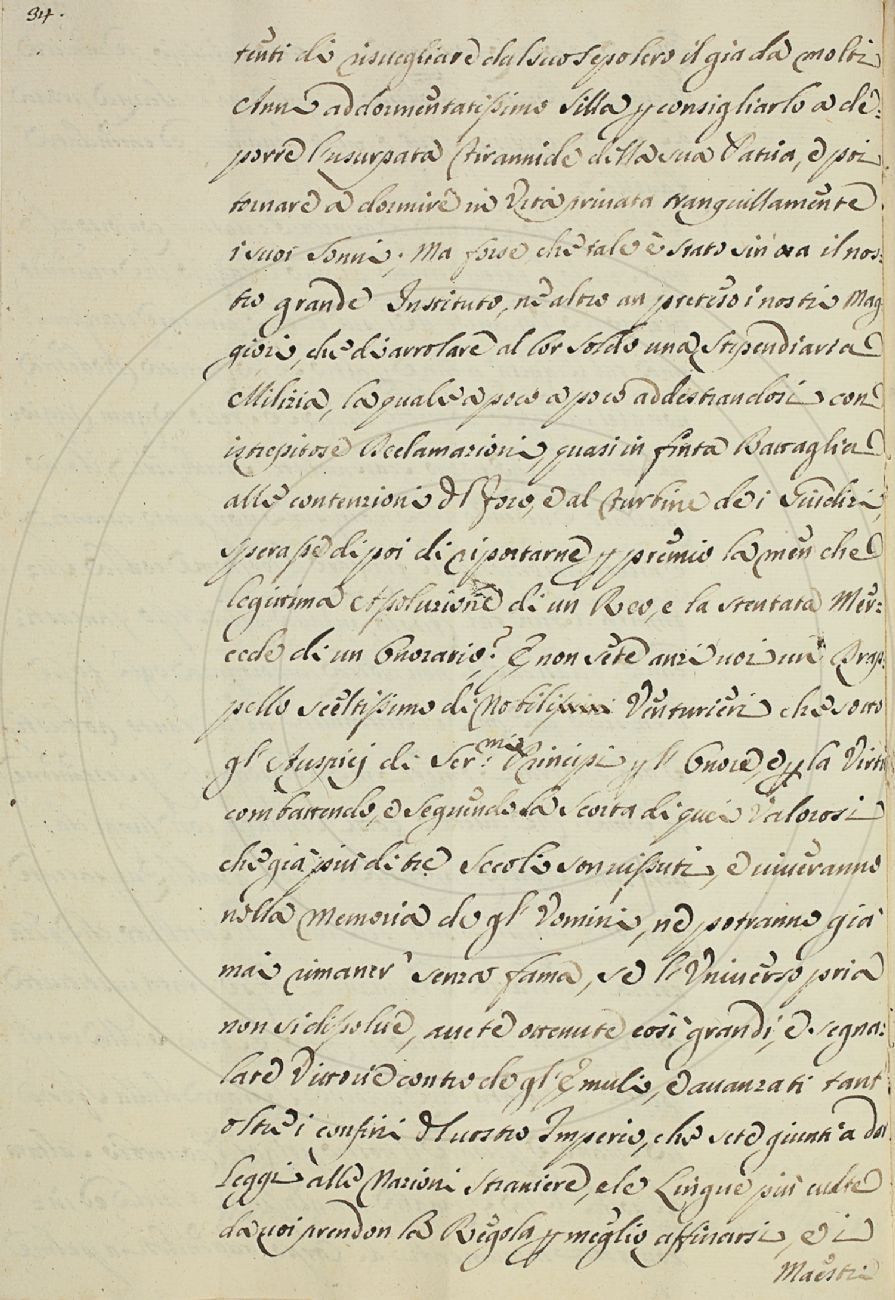 34.
tenti di risvegliare dal suo Sepolcro il già da molti
Anni addormentatissimo Silla, e p consigliarlo a de=
porre l'usurpata Tirannide della sua Patria, e poi
tornare a dormire in Vita privata tranquillamente
i suoi Sonni. Ma forse che tale è stato sin' ora il nos=
tro grande Instituto, ne altro an preteso i nostri Mag
giori, che di arrolare al lor soldo una Stipendiaria
Milizia, la quale a poco a poco addestrandosi con
istrepitose Declamazioni, quasi in finta Battaglia
alle contenzioni dl foro, e al Turbine de i Giudizi,
sperasse di poi di riportarne p premio la men che
legittima Assoluzione di un Reo, e la stentata Mer=
cede di un Onorario? E non sete anzi voi un Drap=
pello sceltissimo di Nobilissimi Venturieri che sotto
gl' Auspicj di Ser.mi Principi p l' Onore, e p la Virtù
combattendo, e seguendo la Scorta di quei Valorosi
che già più di tre Secoli son vissuti, e viveranno
nella Memoria de gl' Uomini, ne potranno già
mai rimaner' senza fama, se l' Universo pria
non si dissolve, avete ottenute così grandi, e segna=
late Vittorie contro de gl' Emuli, e avanzati tant'
oltre i confini dl vostro Imperio, che sete giunti a dar
Leggi alle Nazioni Straniere, e le Lingue più culte
da voi prendon la Regola p meglio affinarsi, e i
Maestri